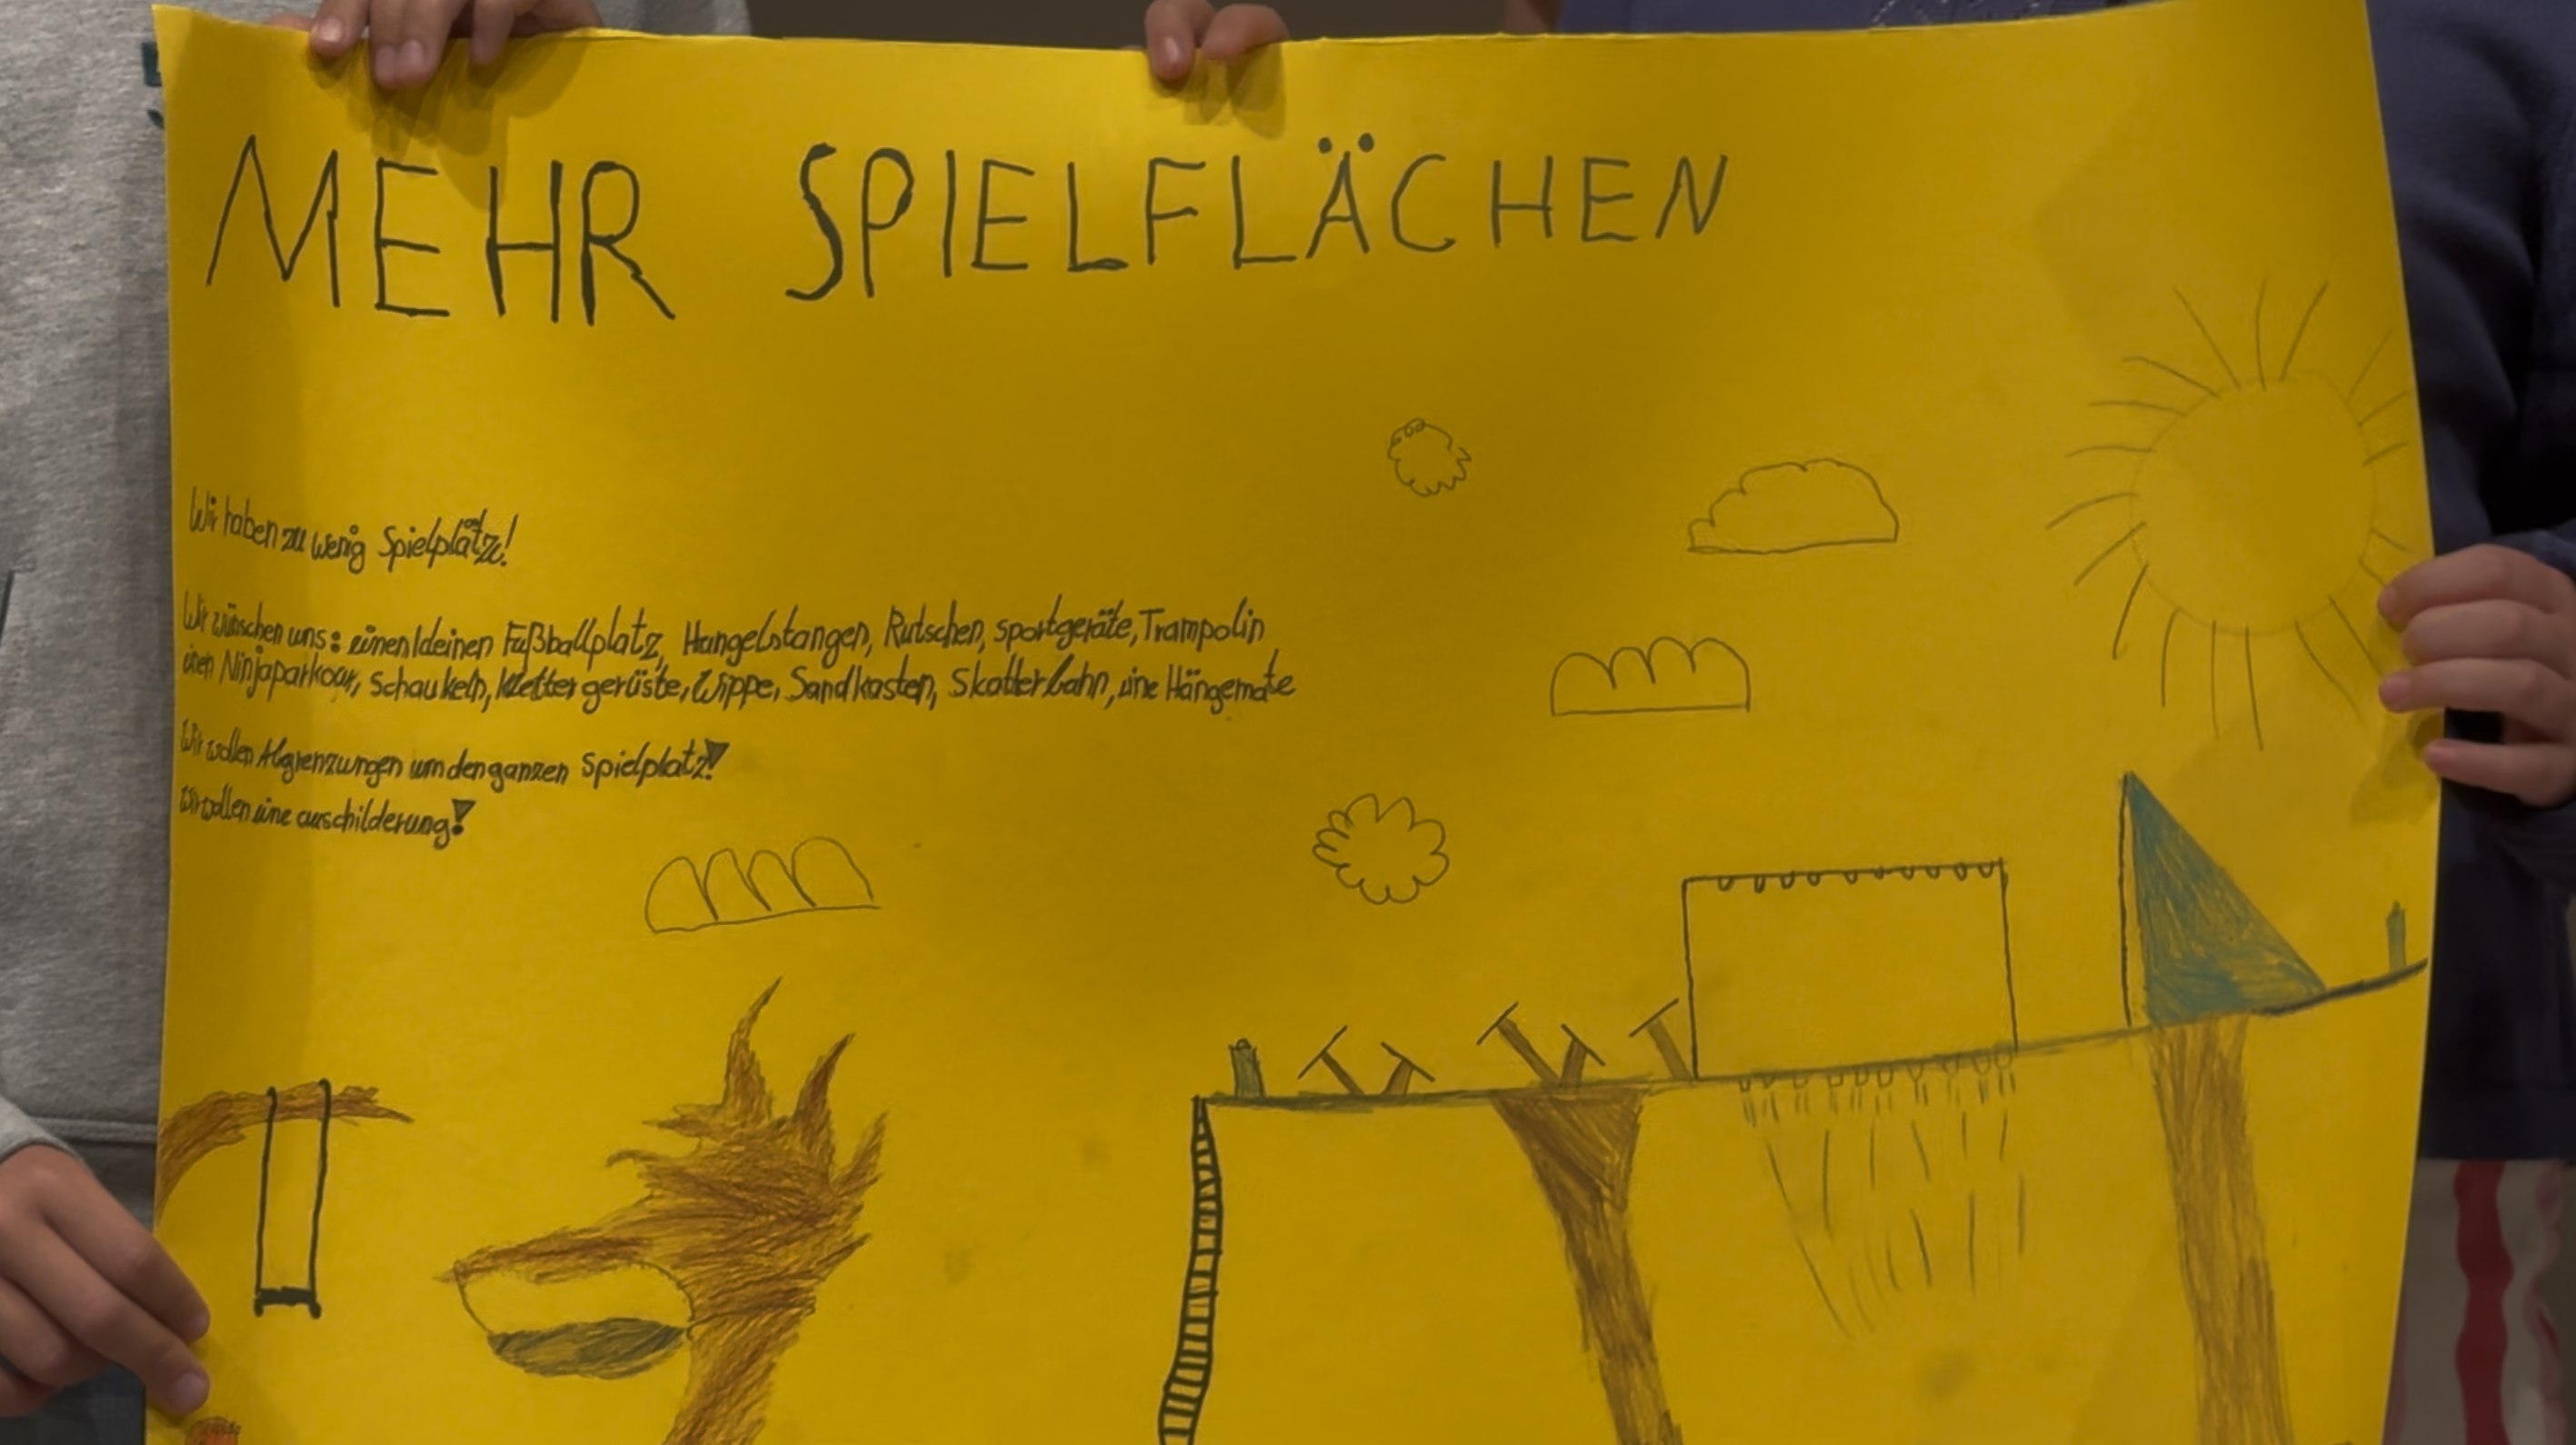 MEHR SPIELFLÄCHEN
Wir haben zu wenig Spielplätze!
Wir wünschen uns: einen kleinen Fußballplatz, Hangelstangen, Rutschen, sportgeräte, Trampolin
einen Ninjaparkour, Schaukeln, Klettergerüste, Wippe, Sandkasten, Skatterbahn, eine Hängemate
Wir wollen Abgrenzungen um den ganzen Spielplatz!
Wir wollen eine auschilderung!